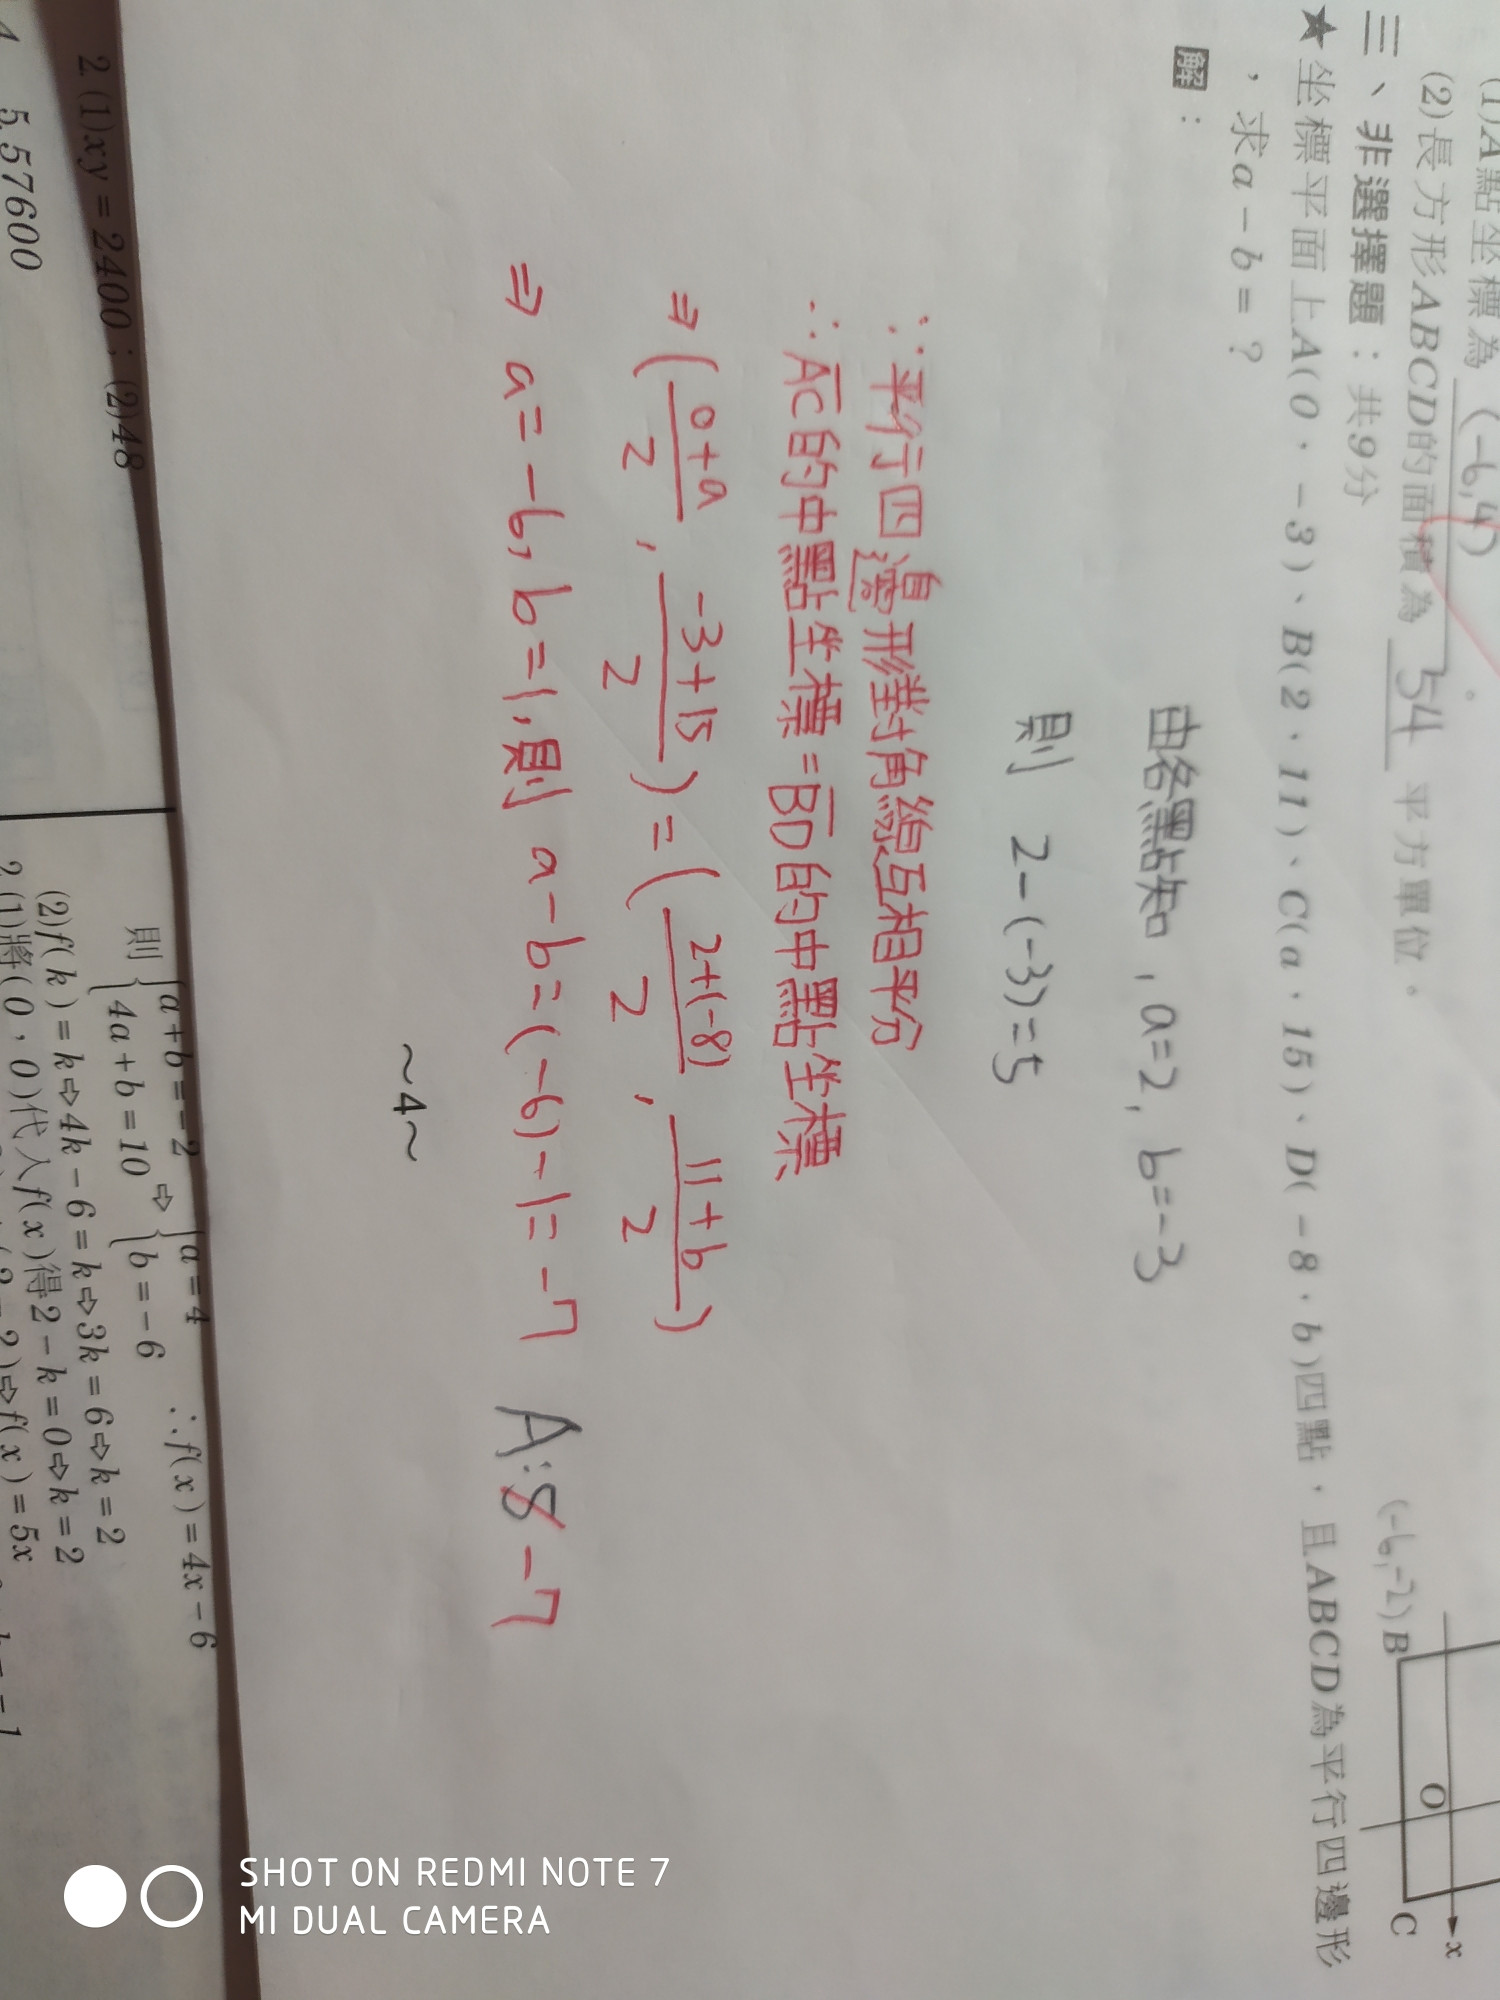 (1)A點坐標為 (-6,4)
(2)長方形ABCD的面積為 54 平方單位。
(-6,-2) B
O
x
C
三、非選擇題：共9分
★坐標平面上A(0，-3)、B(2，11)、C(a，15)、D(-8，b)四點，且ABCD為平行四邊形
，求a-b=？
解：
由各點知，a=2, b=-3
則 2-(-3)=5
∵平行四邊形對角線互相平分
∴AC的中點坐標=BD的中點坐標
⇒(0+a/2, -3+15/2)=(2+(-8)/2, 11+b/2)
⇒ a=-6, b=1, 則 a-b=(-6)-1=-7 A:8 -7
~4~
2.(1)xy=2400；(2)48
5.57600
則{a+b=-2 ⇨ {a=4 ∴f(x)=4x-6
4a+b=10 b=-6
(2)f(k)=k⇨4k-6=k⇨3k=6⇨k=2
2.(1)將(0，0)代入f(x)得2-k=0⇨k=2
⇨f(x)=5x
SHOT ON REDMI NOTE 7
MI DUAL CAMERA